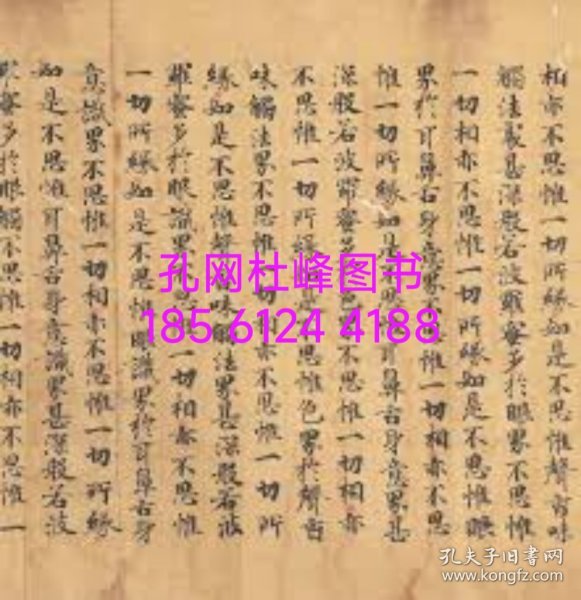 相亦不思惟一切所緣如是不思惟聲香味
觸法處甚深般若波羅蜜多於眼界不思惟
一切相亦不思惟一切所緣如是不思惟眼
界於耳鼻舌身意界不思惟一切相亦不思
惟一切所緣如是不思惟耳鼻舌身意界甚
深般若波羅蜜多不思惟一切相亦
不思惟一切所緣不思惟色界於聲香
味觸法界不思惟一切亦不思惟一切所
緣如是不思惟味觸法界甚深般若波
羅蜜多於眼識界一切相亦不思惟
一切所緣如是不思眼識界於耳鼻舌身
意識界不思惟一切相亦不思惟一切所緣
如是不思惟耳鼻舌身意識界甚深般若波
羅蜜多於眼觸不思惟一切相亦不思惟一
孔网杜峰图书
185 6124 4188
孔夫子旧书网
www.kongfz.com